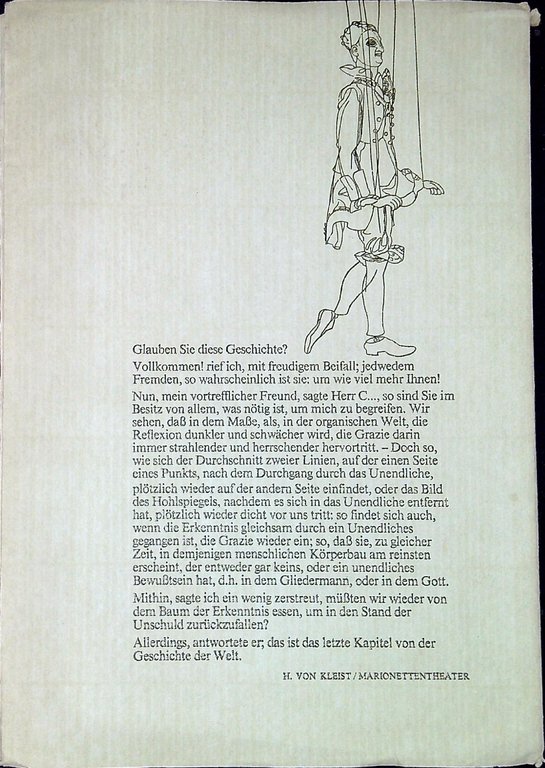 Glauben Sie diese Geschichte?
Vollkommen! rief ich, mit freudigem Beifall; jedwedem
Fremden, so wahrscheinlich ist sie: um wie viel mehr Ihnen!
Nun, mein vortrefflicher Freund, sagte Herr C..., so sind Sie im
Besitz von allem, was nötig ist, um mich zu begreifen. Wir
sehen, daß in dem Maße, als, in der organischen Welt, die
Reflexion dunkler und schwächer wird, die Grazie darin
immer strahlender und herrschender hervortritt. – Doch so,
wie sich der Durchschnitt zweier Linien, auf der einen Seite
eines Punkts, nach dem Durchgang durch das Unendliche,
plötzlich wieder auf der andern Seite einfindet, oder das Bild
des Hohlspiegels, nachdem es sich in das Unendliche entfernt
hat, plötzlich wieder dicht vor uns tritt: so findet sich auch,
wenn die Erkenntnis gleichsam durch ein Unendliches
gegangen ist, die Grazie wieder ein; so, daß sie, zu gleicher
Zeit, in demjenigen menschlichen Körperbau am reinsten
erscheint, der entweder gar keins, oder ein unendliches
Bewußtsein hat, d.h. in dem Gliedermann, oder in dem Gott.
Mithin, sagte ich ein wenig zerstreut, müßten wir wieder von
dem Baum der Erkenntnis essen, um in den Stand der
Unschuld zurückzufallen?
Allerdings, antwortete er; das ist das letzte Kapitel von der
Geschichte der Welt.
H. VON KLEIST / MARIONETTENTHEATER